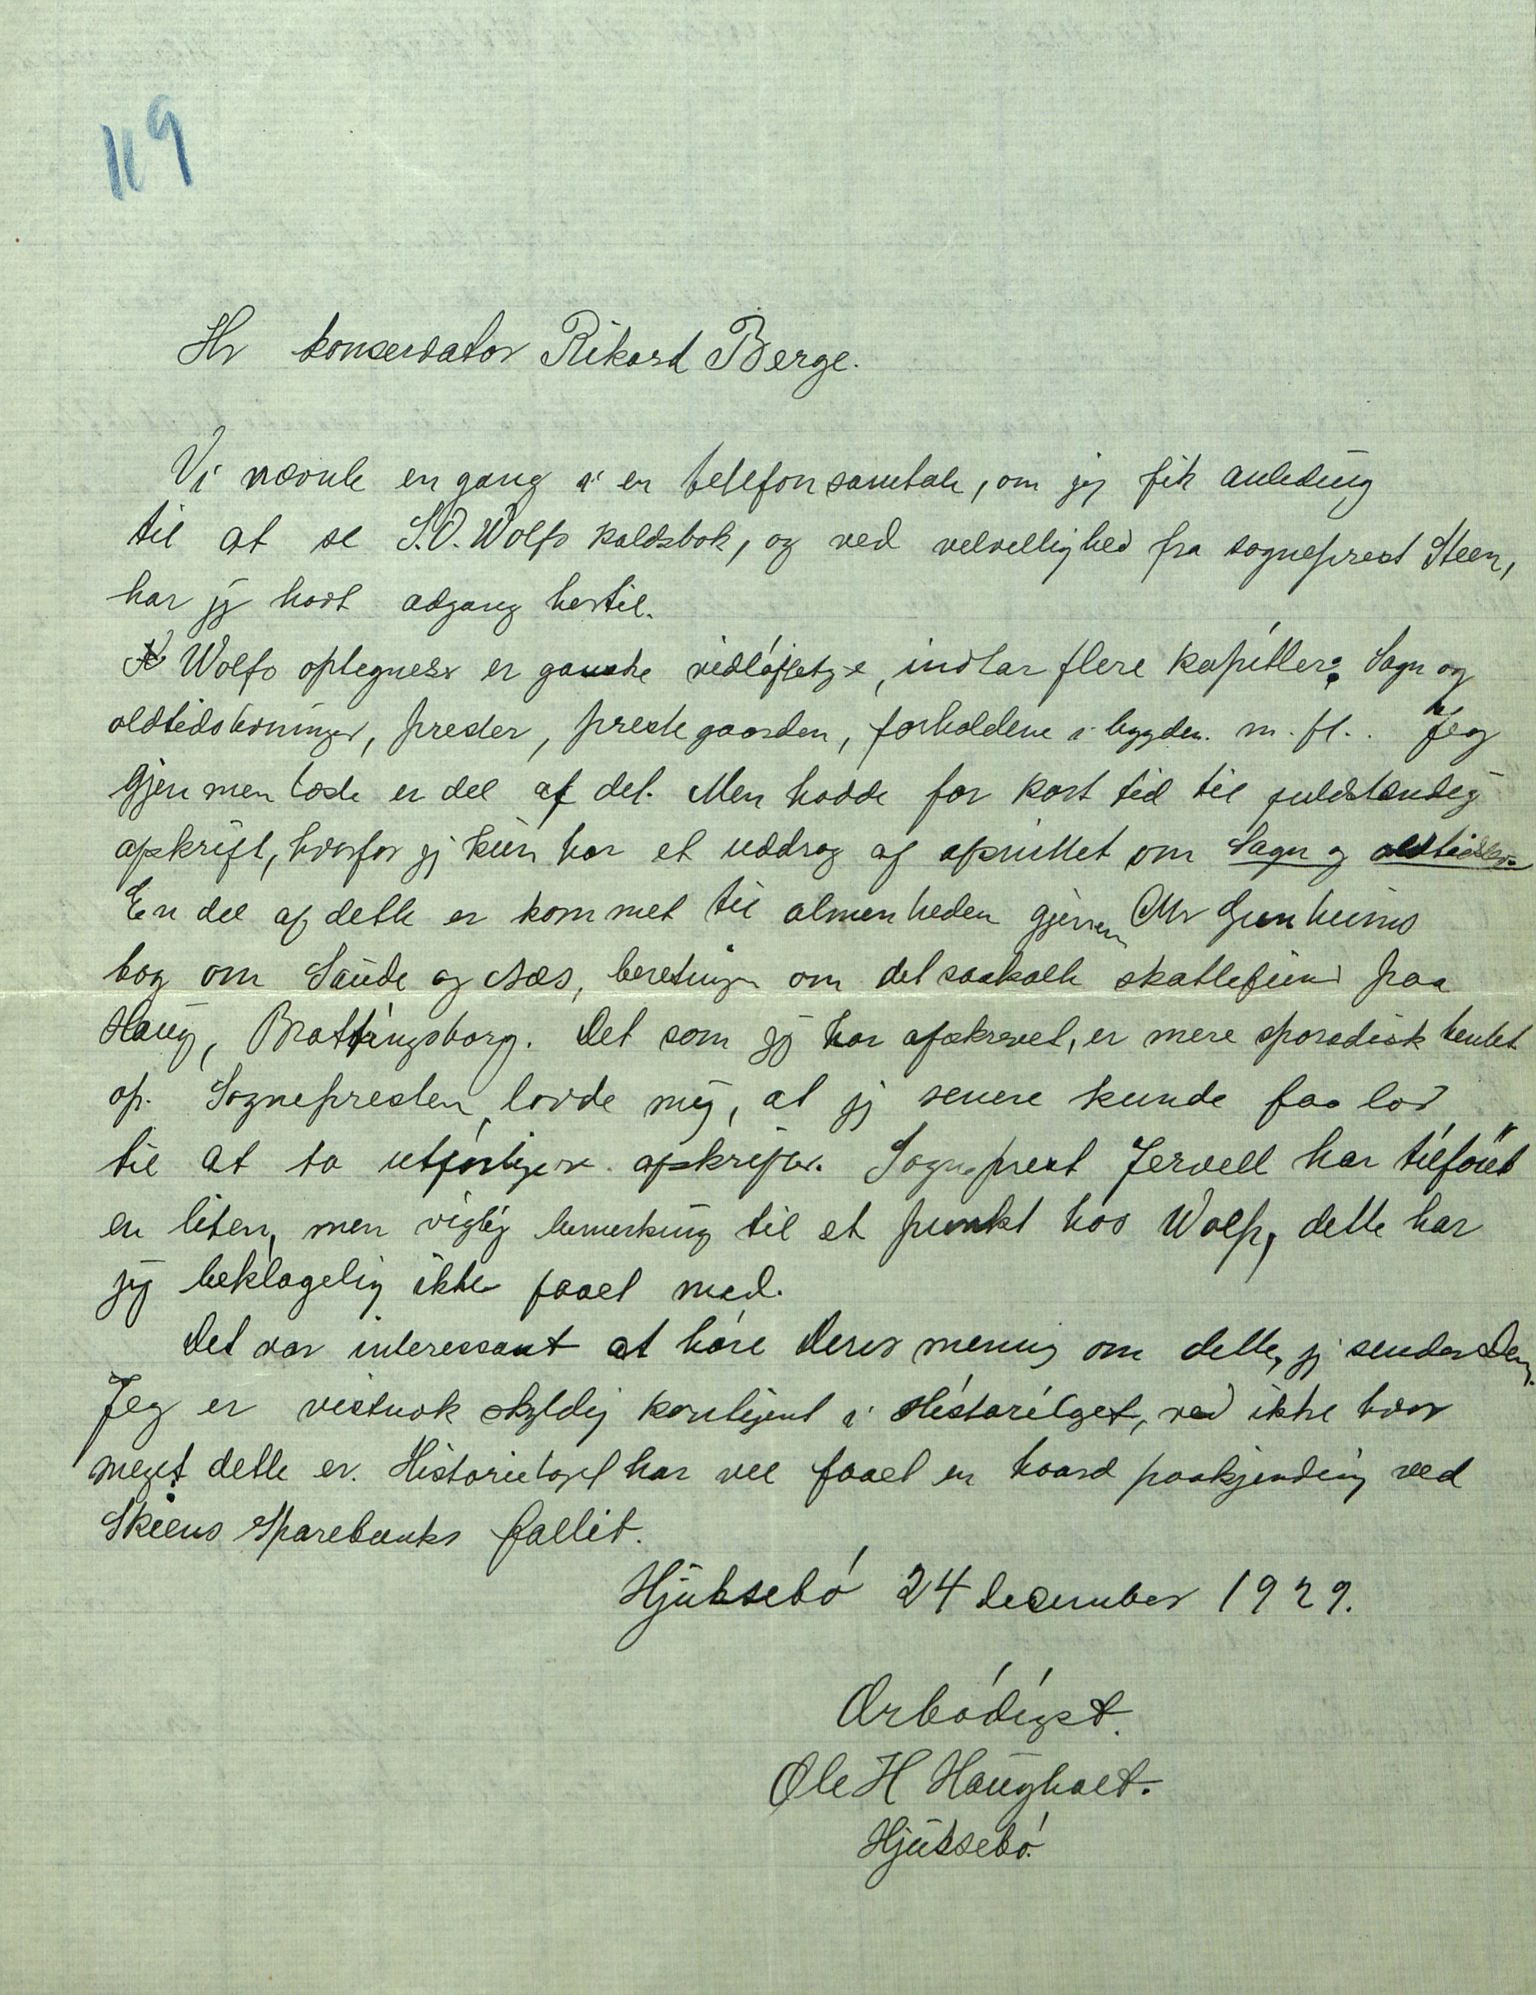 119
Hr konservator Rikard Berge.
Vi nævnte en gang i en telefonsamtale, om jeg fik anleding
til at se S.O. Wolfs kaldsbok, og ved velvellighed fra sogneprest Steen,
har jeg havt adgang hertil.
Wolfs optegneser er ganske vidløftige, indtar flere kapitler: Sagn og
oldtidslevninger, prester, prestegaarden, forholdene i bygden. m. fl.. Jeg
gjenmenlæste en del af det. Men hadde for kort tid til fuldstændig
afskrift, hvorfor jeg kun har et uddrag af afsnittet om Sagn og oldtidslev-
En del af dette er kommet til almenheden gjennem Mr Gunheims
bog om Saude og Næs, beretninger om det saakalte skattefund paa
Haug, Brattingsborg. Det som jeg har afskrevet, er mere sporadisk hentet
op. Sognepresten lovde mig, at jeg senere kunde faa lov
til at ta utførligere afskrifter. Sogneprest Jervell har tilføiet
en liten, men vigtig bemerkning til et punkt hos Wolf, dette har
jeg beklagelig ikke faaet med.
Det var interessant at høre Deres mening om dette, jeg sender Dem.
Jeg er vistnok skyldig kontigent i Historielaget, ved ikke hvor
meget dette er. Historielaget har vel faaet en haard paakjending ved
Skiens Sparebanks fallit.
Hjuksebø 24 december 1929.
Ærbødigst.
Ole H Haugholt.
Hjuksebø.